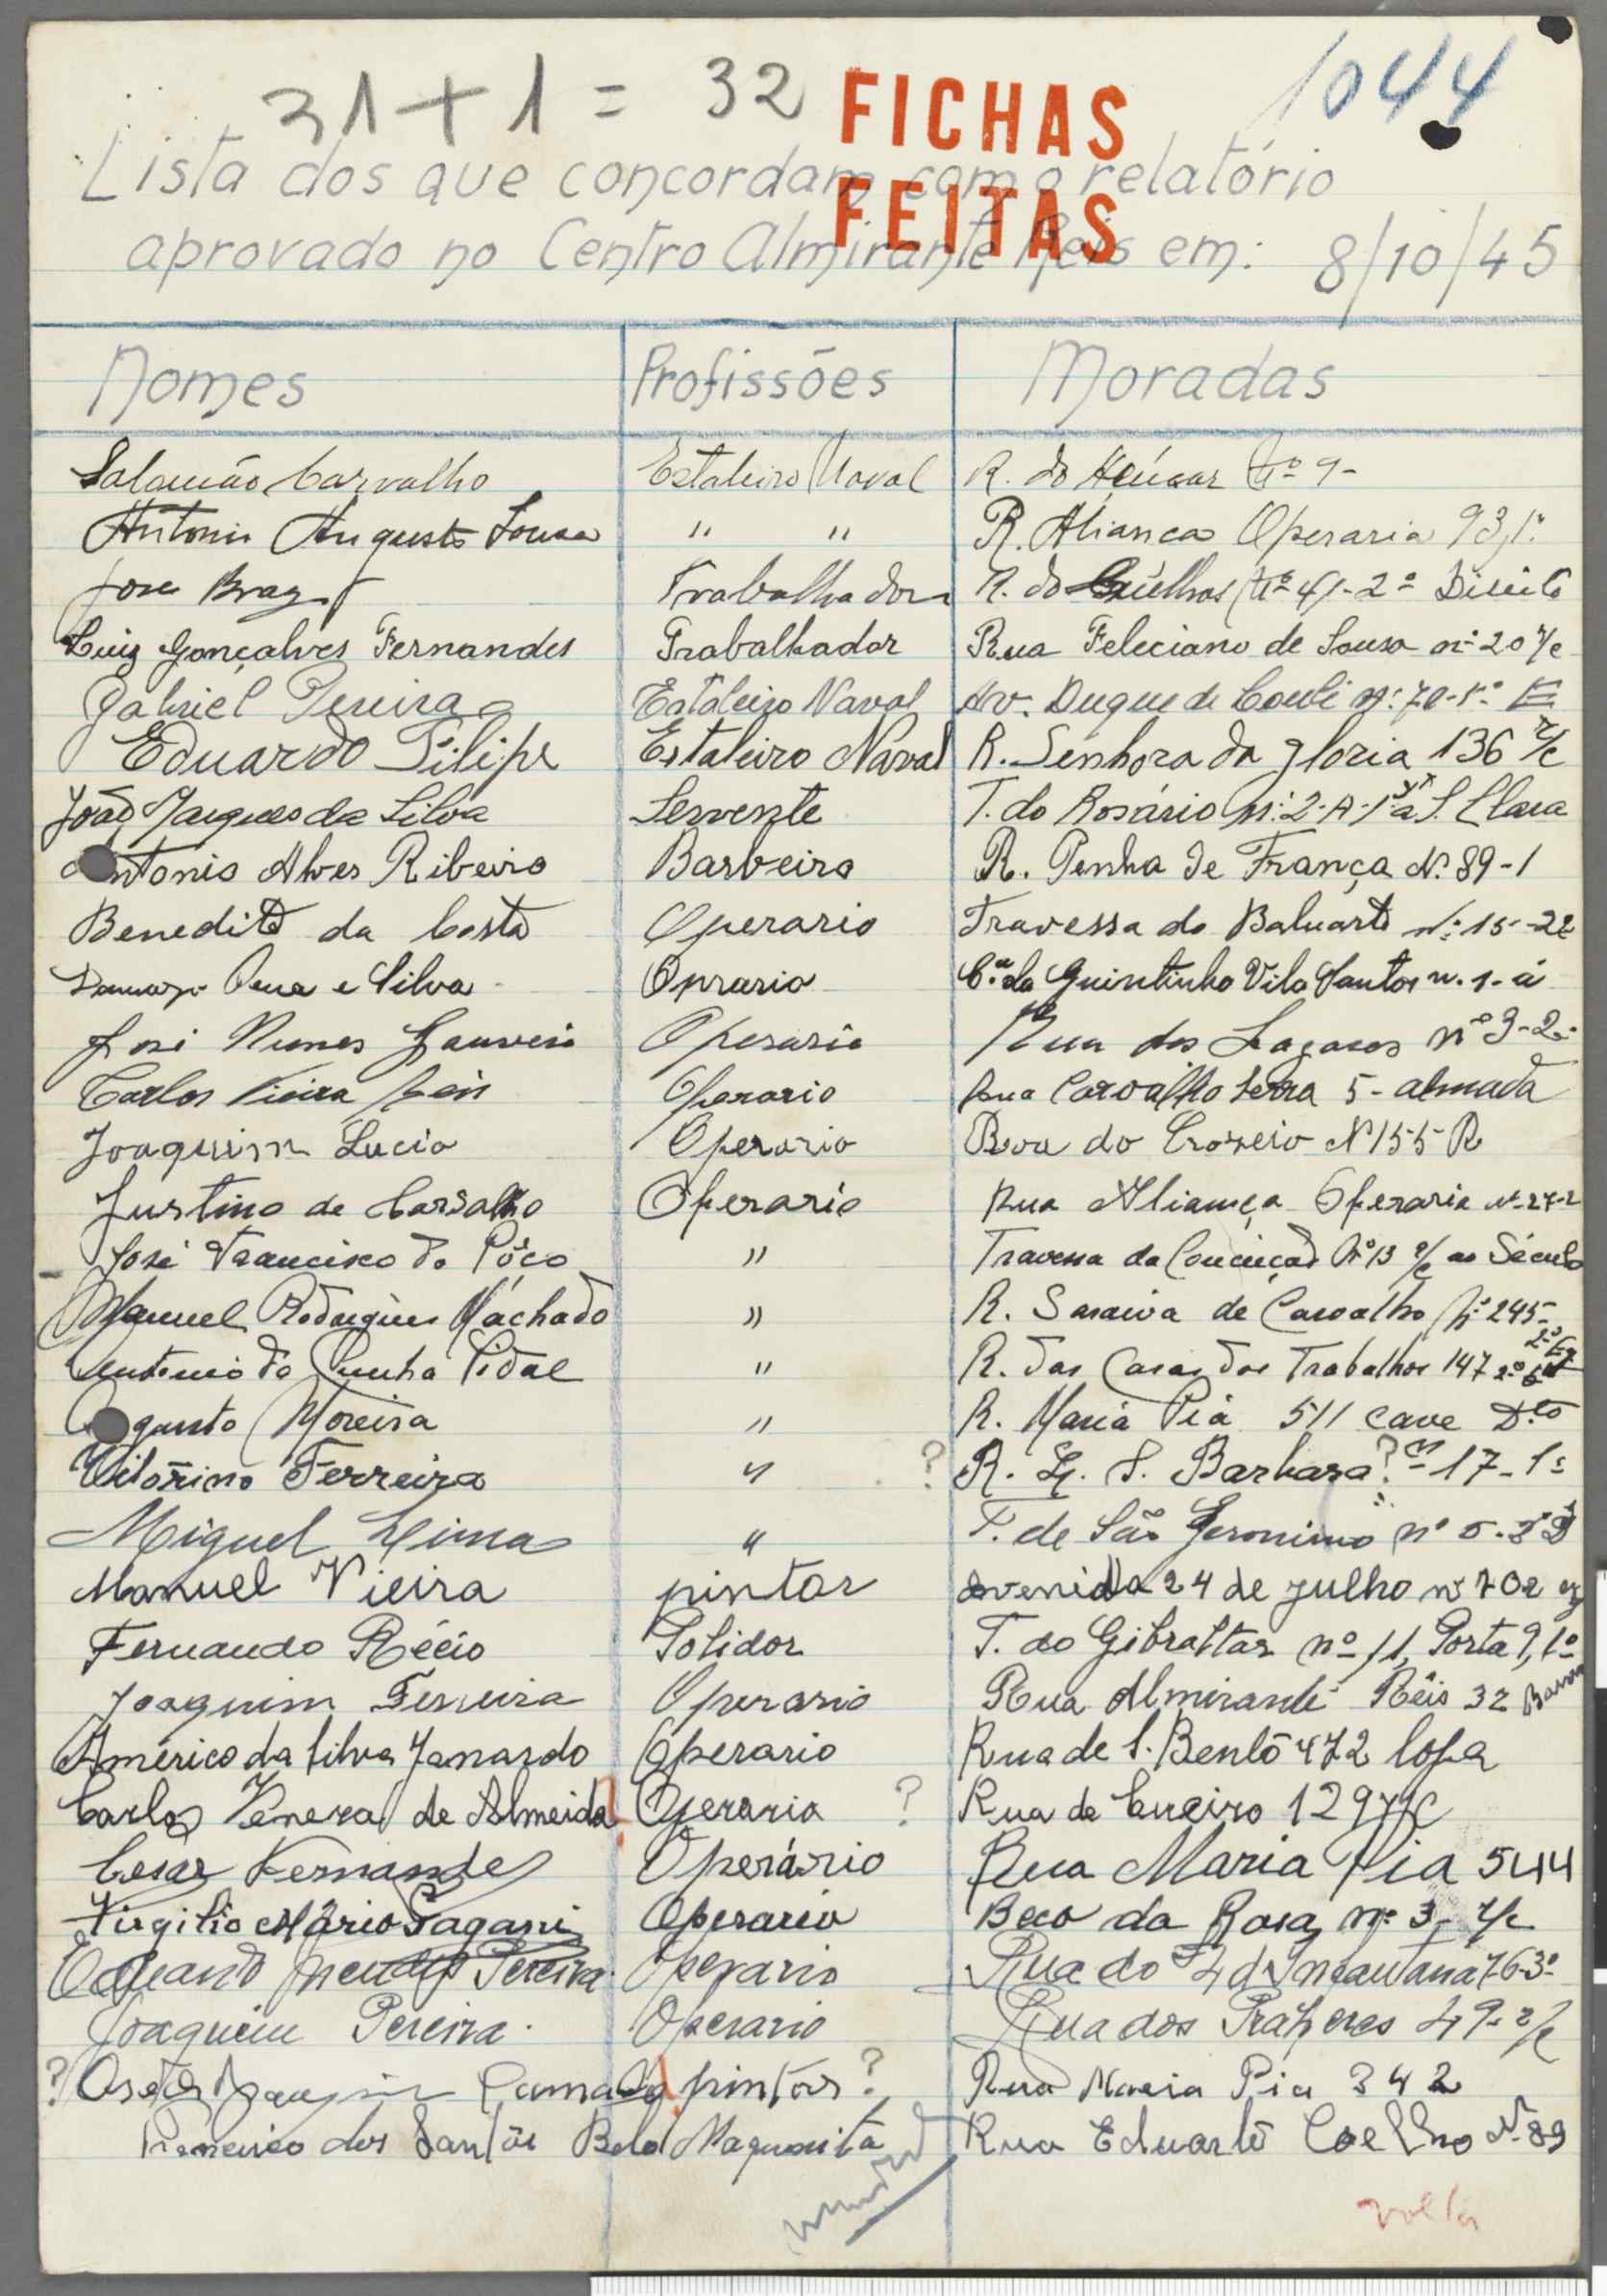 31 + 1 = 32
1044
FICHAS
FEITAS
Lista dos que concordam com o relatório
aprovado no Centro Almirante Reis em: 8/10/45
Nomes Profissões Moradas
Salamão Carvalho Estaleiro Naval R. do Açúcar Nº 9-
Antonio Augusto Sousa " " R. Aliança Operaria 93, 1º
José Braz Trabalhador R. do Nº 41-2º Direito
Luiz Gonçalves Fernandes Trabalhador Rua Feleciano de Sousa nº 20 r/c
Gabriel Pereira Estaleiro Naval Av. Duque de nº 70-1º E
Eduardo Filipe Estaleiro Naval R. Senhora da Gloria 136 r/c
João Marques da Silva Servente T. do Rosário nº 2-A-1º a S. Clara
Antonio Alves Ribeiro Barbeiro R. Penha de França Nº 89-1
Benedito da Costa Operario Travessa do Baluarte nº 15-2º
e Silva Oprario Cª da Quintinha Vila Santos n. 1-á
José Nunes Gouveia Operario Rua dos Lagares nº 9-2º
Carlos Vieira Operario Rua Carvalho Serra 5- almada
Joaquim Lucio Operario Rua do Croseio Nº 155 R
Justino de Carvalho Operario Rua Aliança Operaria Nº 27-2
José Francisco do Pôço " Travessa da Conceiçad Nº 13 r/c ao Século
Manuel Rodrigues Machado " R. Saraiva de Carvalho Nº 245-
2º Eq
Antonio da Cunha Vidal " R. das Casas dos Trabalhos 147 2º
Augusto Moreira " R. Maria Pia 511 cave Dto
Vitorino Ferreira " ? R. S. Barbara? nº 17-1º
Miguel Lima " T. de São Jeronimo nº
Manuel Vieira pintor Avenida 24 de julho nº 702
Fernando Récio Polidor T. do Gibraltar nº 11, Porta 9, 1º
Joaquim Ferreira Operario Rua Almirante Réis 32
Américo da Silva Janardo Operario Rua de S. Bentô 472 loja
Carlos de Almeida Operario ? Rua do Cruzeiro 129 r/c
Cesar Fernandes Operário Rua Maria Pia 544
Virgilio Mário Pagani Operario Beco da Rosa nº 3- r/c
Eduardo Mendes Pereira Operario Rua do 76-3º
Joaquim Pereira Operario Rua dos Prazeres 49- r/c
? pintor ? Rua Maria Pia 342
Francisco dos Santos Belo Maquinista Rua Eduardo Coelho Nº 89
volta